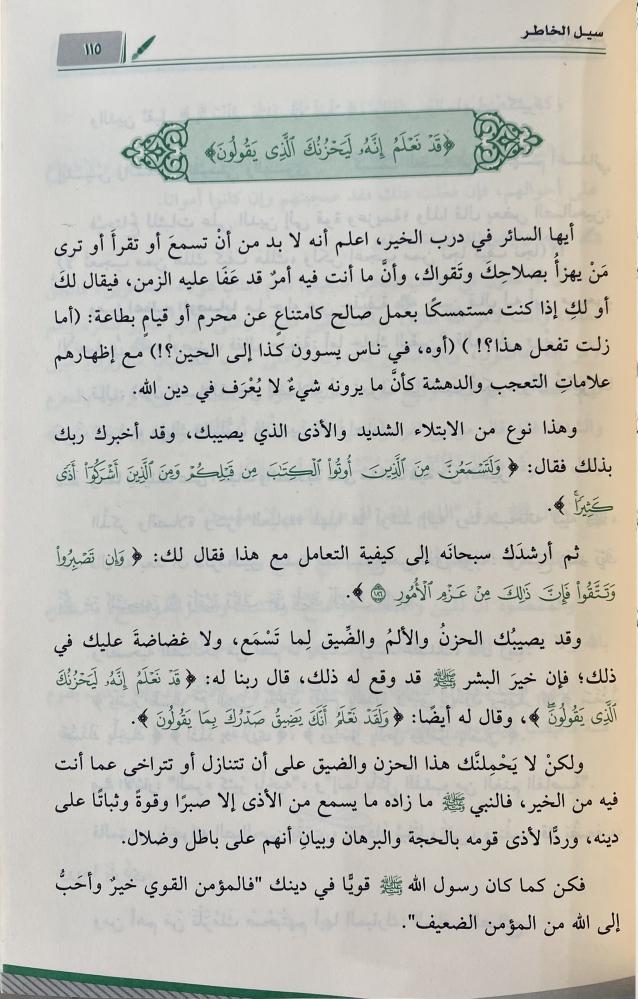 سيل الخاطر
١١٥
﴿قَدْ نَعْلَمُ إِنَّهُۥ لَيَحْزُنُكَ ٱلَّذِى يَقُولُونَ﴾
أيها السائر في درب الخير، اعلم أنه لا بد من أنْ تسمعَ أو تقرأَ أو ترى
مَنْ يهزأُ بصلاحِكَ وتَقواك، وأنَّ ما أنت فيه أمرٌ قد عَفَا عليه الزمن، فيقال لكَ
أو لكِ إذا كنت مستمسكًا بعمل صالح كامتناعٍ عن محرم أو قيامٍ بطاعة: (أما
زلت تفعل هذا؟! ) (أوه، في ناس يسوون كذا إلى الحين؟!) مع إظهارهم
علاماتِ التعجب والدهشة كأنَّ ما يرونه شيءٌ لا يُعْرَف في دين الله.
وهذا نوع من الابتلاء الشديد والأذى الذي يصيبك، وقد أخبرك ربك
بذلك فقال: ﴿ وَلَتَسْمَعُنَّ مِنَ ٱلَّذِينَ أُوتُوا۟ ٱلْكِتَٰبَ مِن قَبْلِكُمْ وَمِنَ ٱلَّذِينَ أَشْرَكُوٓا۟ أَذًى
كَثِيرًا ۚ ﴾.
ثم أرشدَك سبحانَه إلى كيفية التعامل مع هذا فقال لك: ﴿ وَإِن تَصْبِرُوا۟
وَتَتَّقُوا۟ فَإِنَّ ذَٰلِكَ مِنْ عَزْمِ ٱلْأُمُورِ ۝١٨٦ ﴾.
وقد يصيبُك الحزنُ والألمُ والضِّيق لِما تَسْمَع، ولا غضاضةَ عليك في
ذلك؛ فإن خيرَ البشر ﷺ قد وقع له ذلك، قال ربنا له: ﴿ قَدْ نَعْلَمُ إِنَّهُۥ لَيَحْزُنُكَ
ٱلَّذِى يَقُولُونَ ۖ ﴾، وقال له أيضًا: ﴿ وَلَقَدْ نَعْلَمُ أَنَّكَ يَضِيقُ صَدْرُكَ بِمَا يَقُولُونَ ﴾.
ولكنْ لا يَحْمِلنَّك هذا الحزن والضيق على أن تتنازل أو تتراخى عما أنت
فيه من الخير، فالنبي ﷺ ما زاده ما يسمع من الأذى إلا صبرًا وقوةً وثباتًا على
دينه، وردًّا لأذى قومه بالحجة والبرهان وبيانِ أنهم على باطل وضلال.
فكن كما كان رسول الله ﷺ قويًّا في دينك "فالمؤمن القوي خيرٌ وأحَبُّ
إلى الله من المؤمن الضعيف".